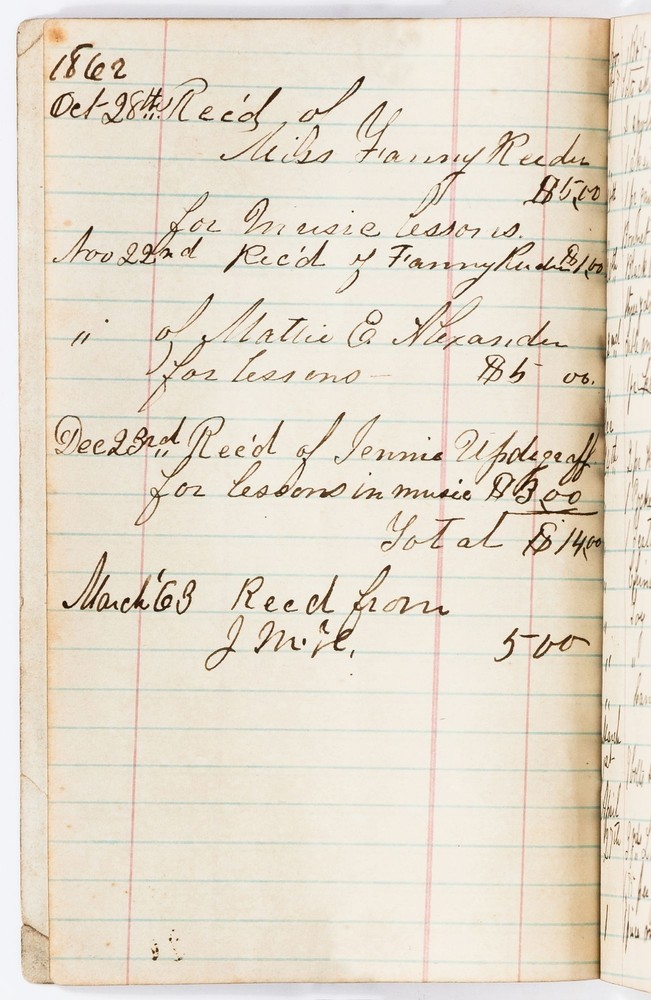 1862
Oct 28th,, Rec'd of
Miss Fanny Reeder
$5,00
for Music lessons.
Nov 22nd Rec'd of Fanny Reeder $1,00
" of Mattie E. Alexander
for lessons — $5 00.
Dec 23rd,, Rec'd of Jennie Updegraff
for lessons in music $3,00
Total $14,00
March '63 Recd from
J Mc.
5 00